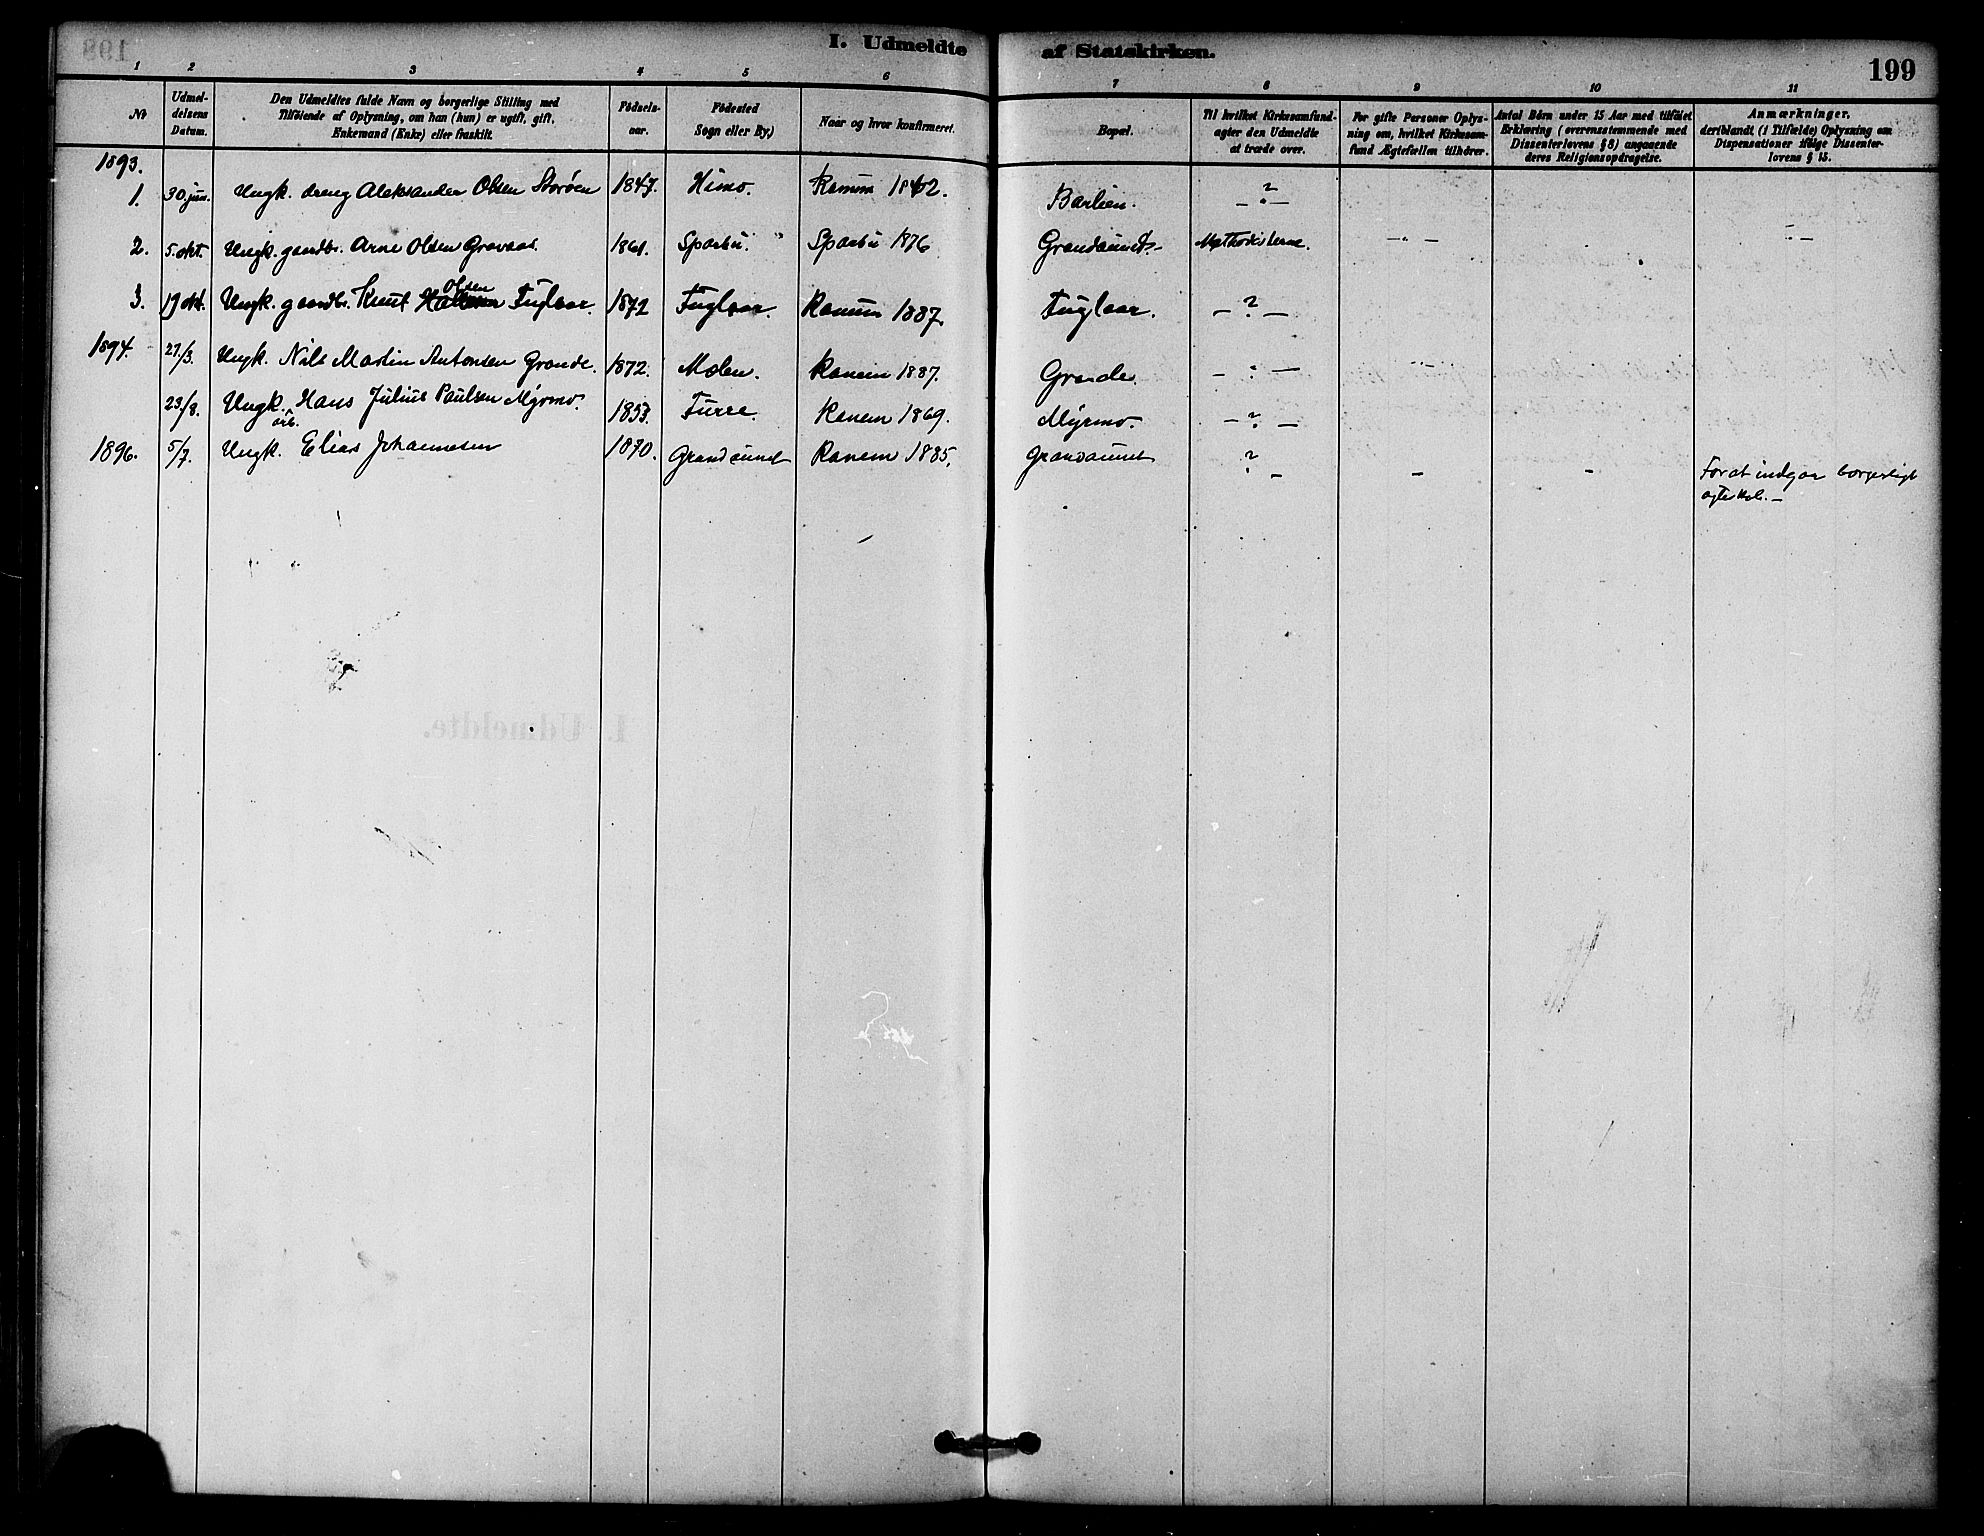 I. Udmeldte af Statskirken.
199
1 2 3 4 5 6 7 8 9 10 11
№
Udmel-
delsens
Datum.
Den Udmeldtes fulde Navn og borgerlige Stilling med
Tilføiende af Oplysning, om han (hun) er ugift, gift,
Enkemand (Enke) eller fraskilt.
Fødsels-
aar.
Fødested
Sogn eller By.)
Naar og hvor konfirmeret.
Bopæl.
Til hvilket Kirkesamfund
agter den Udmeldte
at træde over.
For gifte Personer Oplys-
ning om, hvilket Kirkesam-
fund Ægtefællen tilhører.
Antal Børn under 15 Aar med tilføiet
Erklæring (overensstemmende med
Dissenterlovens § 8) angaaende
deres Religionsopdragelse.
Anmærkninger,
deriblandt (i Tilfælde) Oplysning om
Dispensationer ifølge Dissenter-
lovens § 15.
1893.
1. 30. jun. Ungk. dreng Aleksander Olsen Storøen 1847. Himo. Ranum 1862. Barlien. — ? —
2. 5. okt. Ungk. gaardbr. Arne Olsen Gravaas. 1861. Sparbu. Sparbu 1876 Grandaunet. Methodisterne. — " — — " —
3. 19 okt. Ungk. gaardbr. Knut Olsen Fuglaar. 1872 Fuglaar. Ranum 1887. Fuglaar. — ? —
1894. 27/3. Ungk. Nils Martin Antonsen Grande. 1872. Molen. Ranem 1887. Grande. — " —
23/8. Ungk. arb. Hans Julius Paulsen Myrmo. 1853. Furre. Ranem 1869. Myrmo. — ? —
1896. 5/7. Ungk. Elias Johannesen 1870. Grandaunet Ranem 1885. Grandaunet ? — — — For at indgaa borgerligt
ægteskab. —